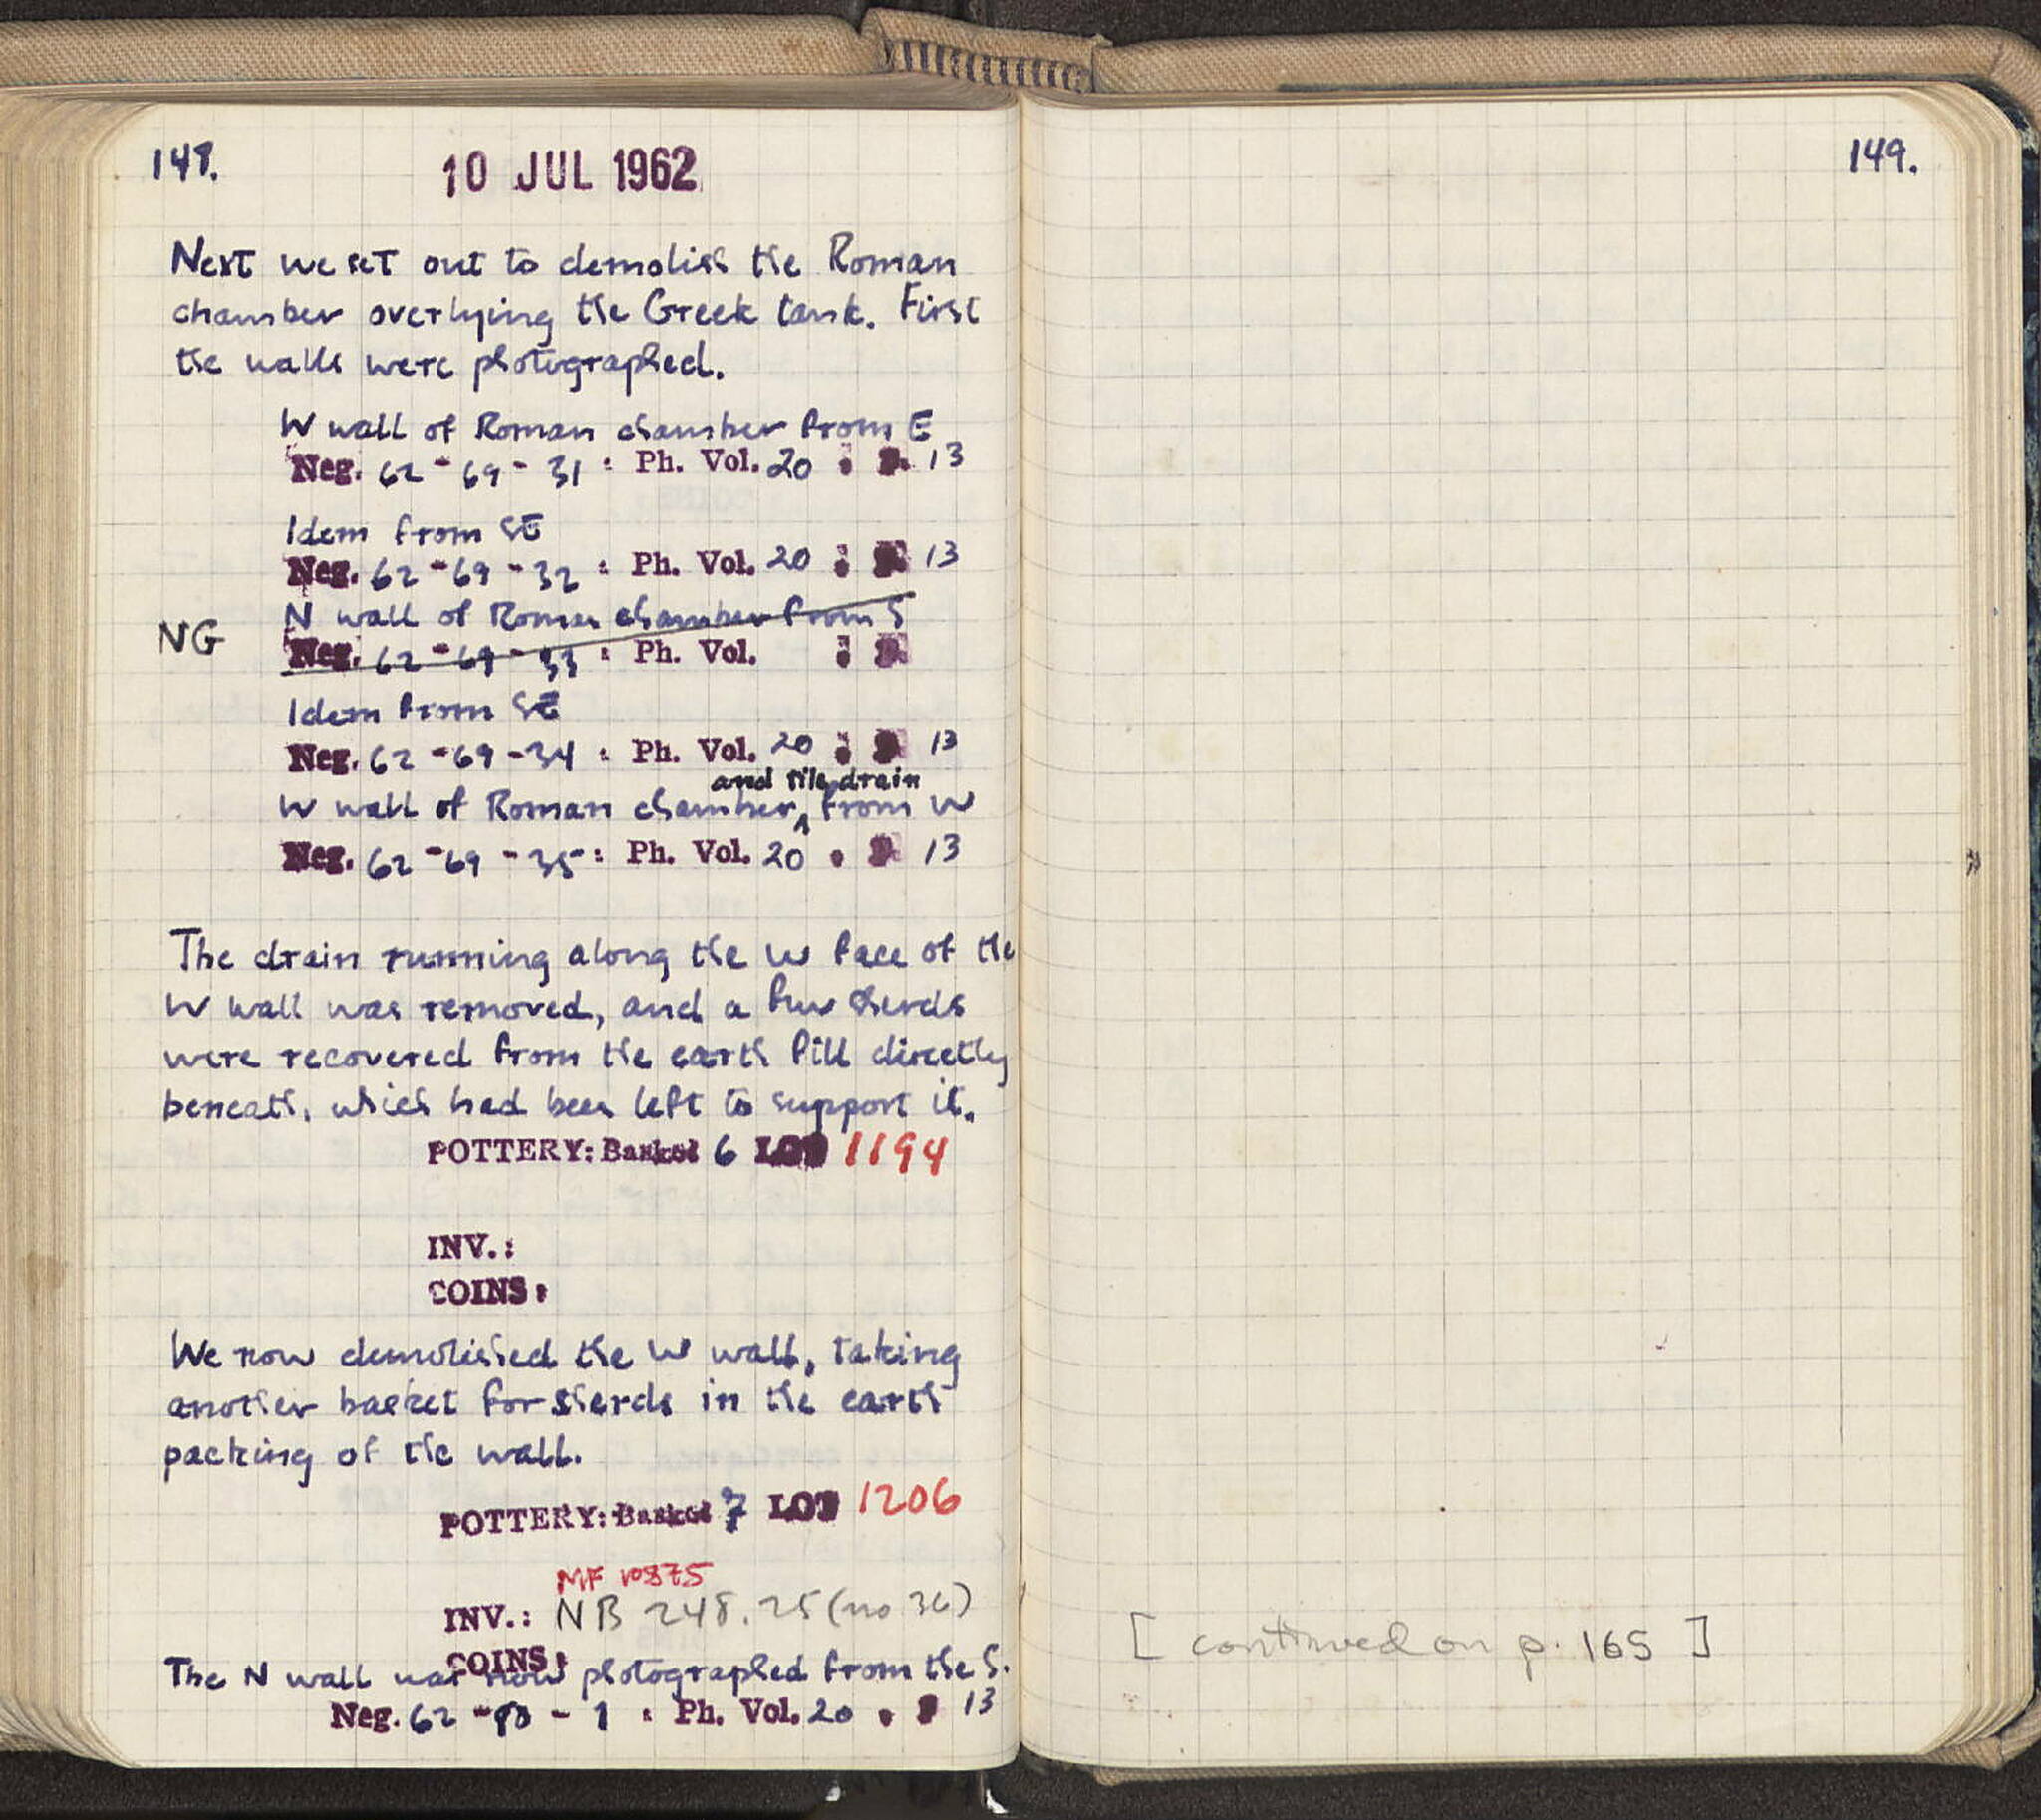 148.
10 JUL 1962
Next we set out to demolish the Roman
chamber overlying the Greek tank. First
the walls were photographed.
W wall of Roman chamber from E
Neg. 62-69-31 : Ph. Vol. 20 : P. 13
Idem from SE
Neg. 62-69-32 : Ph. Vol. 20 : P. 13
N wall of Roman chamber from S
NG Neg. 62-69-33 : Ph. Vol. : P.
Idem from SE
Neg. 62-69-34 : Ph. Vol. 20 : P. 13
and tile drain
W wall of Roman chamber ^ from W
Neg. 62-69-35 : Ph. Vol. 20 : P. 13
The drain running along the W face of the
W wall was removed, and a few sherds
were recovered from the earth fill directly
beneath, which had been left to support it.
POTTERY: Basket 6 LOT 1194
INV.:
COINS:
We now demolished the W wall, taking
another basket for sherds in the earth
packing of the wall.
POTTERY: Basket 7 LOT 1206
MF 10875
INV.: NB 248.25 (no 36)
COINS:
The N wall was now photographed from the S.
Neg. 62- - 1 : Ph. Vol. 20 : P. 13
149.
[ continued on p. 165 ]